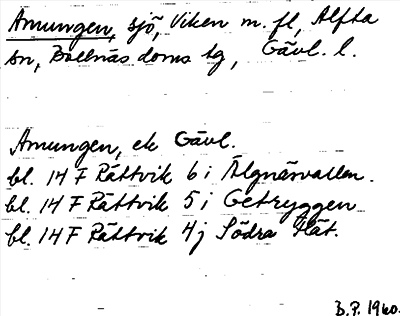 Amungen, sjö, Viken m. fl, Alfta
sn, Bollnäs doms tg, Gävl. l.
Amungen, ek Gävl.
bl. 14 F Rättvik 6 i Älgnäsvallen.
bl. 14 F Rättvik 5 i Getryggen
bl. 14 F Rättvik 4 j Södra Flät.
B.P. 1960.